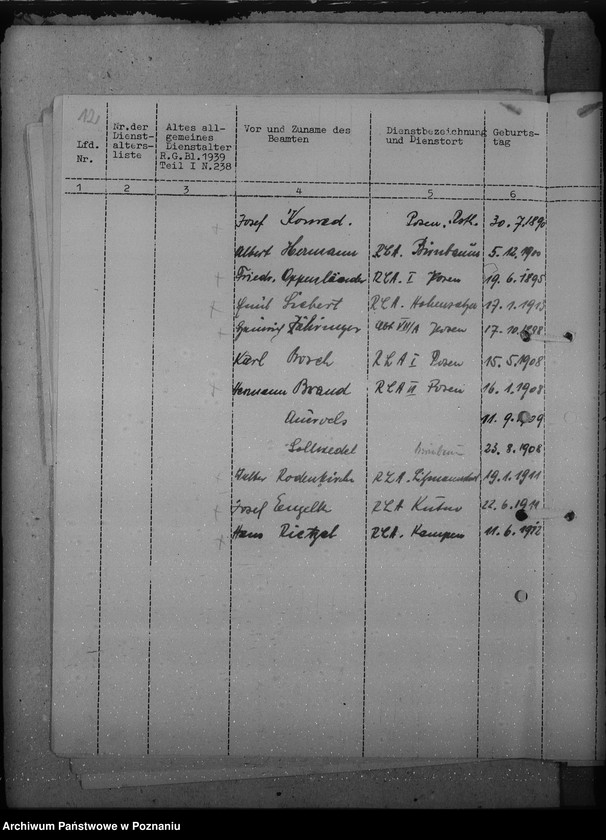 12
Lfd.
Nr.
Nr.der
Dienst-
alters-
liste
Altes all-
gemeines
Dienstalter
R.G.Bl.1939
Teil I N.238
Vor und Zuname des
Beamten
Dienstbezeichnung
und Dienstort
Geburts-
tag
1 2 3 4 5 6
Josef Konrad. Posen 30.7.1890
Albert Hermann RLA. Birnbaum 5.12.1900
Friedr. Oppenländer RLA. I Posen 19.6.1895
Emil Siebert RLA. Hohensalza 17.1.1913
Heinrich Jähringer Abt VII/A Posen 17.10.1898
Karl Borch RLA I Posen 15.5.1908
Hermann Brand RLA II Posen 16.1.1908
11.9.1909
Sollwedel Birnbaum 23.8.1908
Rodenkirche RLA. 19.1.1911
Josef Engelke RLA Kutno 22.6.1911
Hans Rietzel RLA. Kempen 11.6.1912
Archiwum Państwowe w Poznaniu